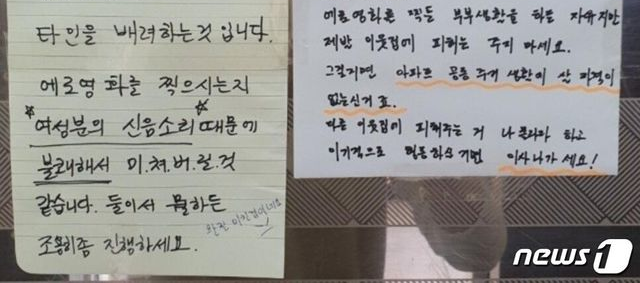 타인을 배려하는것 입니다.
에로영화를 찍으시는지
*여성분의 신음소리* 때문에
불쾌해서 미.쳐.버.릴.것
같습니다. 둘이서 뭘하든
완전 이기적이네요
조용히좀 진행하세요.
에로영화를 찍든 부부생활을 하든 자유지만
제발 이웃집에 피해는 주지 마세요.
그럴거면 아파트 공동 주거 생활이 산
없는신거 죠.
다른 이웃집이 피해주는 거 나 몰라라 하고
이기적으로 행동하실 거면 이사 나가세요!
news1